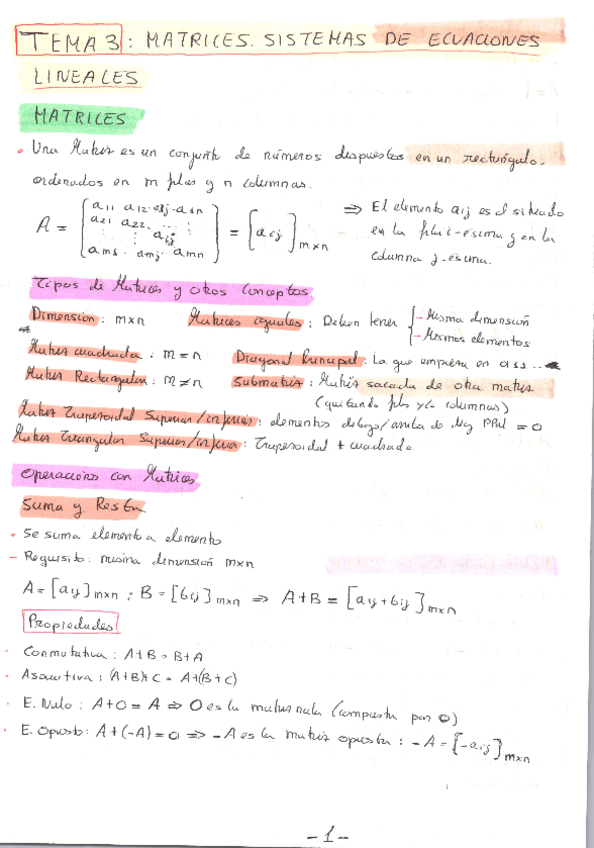 TEMA 3: MATRICES. SISTEMAS DE ECUACIONES
LINEALES
MATRICES
• Una Matriz es un conjunto de números dispuestos en un rectángulo.
ordenados en m filas y n columnas.
A = [a11 a12 ... a1j ... a1n
a21 a22 ...
aij
am1 ... amj ... amn] = [aij]m×n
⇒ El elemento aij es el situado
en la fila i-esima y en la
columna j-esima.
Tipos de Matrices y otros conceptos.
Dimension: m×n Matrices iguales: Deben tener { - Misma dimensión
- Mismos elementos
Matriz cuadrada: m = n Diagonal Principal: La que empieza en a11...
Matriz Rectangular: m ≠ n Submatriz: Matriz sacada de otra matriz
(quitando filas y/o columnas)
Matriz Trapezoidal Superior/inferior: elementos debajo/arriba de = 0
Matriz Triangular Superior/inferior: Trapezoidal + cuadrada.
Operaciones con Matrices
Suma y Resta
• Se suma elemento a elemento
- Requisito: misma dimensión m×n
A = [aij]m×n ; B = [bij]m×n ⇒ A+B = [aij + bij]m×n
Propiedades
· Conmutativa: A+B = B+A
· Asociativa: (A+B)+C = A+(B+C)
· E. Nulo: A+0 = A ⇒ 0 es la matriz nula (compuesta por 0)
· E. Opuesto: A+(-A) = 0 ⇒ -A es la matriz opuesta: -A = [-aij]m×n
- 1 -